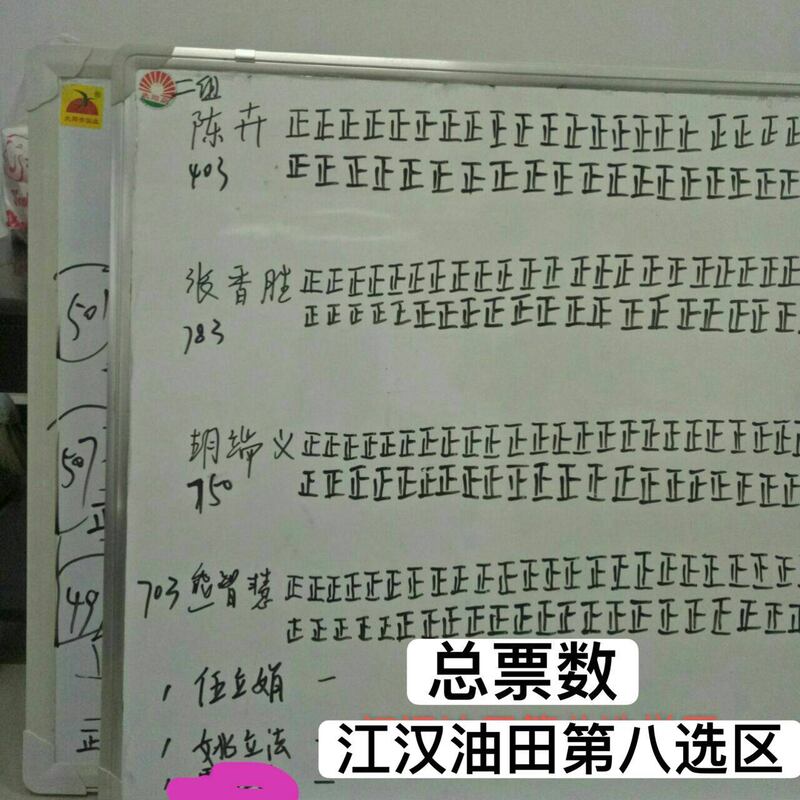 二组
陈卉 正正正正正正正正正正正正正正正正正正正正
403 正正正正正正正正正正正正正正正正正正正
张香胜 正正正正正正正正正正正正正正正正正正正正正
783 正正正正正正正正正正正正正正正正正正正正
胡端义 正正正正正正正正正正正正正正正正正正正正正
750 正正正正正正正正正正正正正正正正正正正正
703 熊智慧 正正正正正正正正正正正正正正正正正正正正正
正正正正正正正正正正正正正正正正正正正正正
1 伍立娟 一
1 姚立法
501
507
正
49
正
总票数
江汉油田第八选区